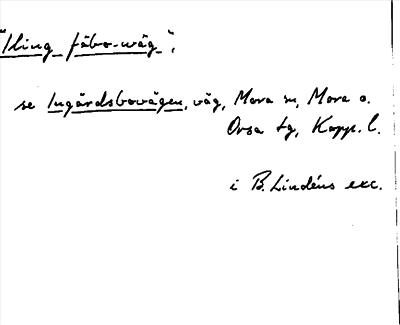 "Iling fäbo-wäg",
se Ingärdsbovägen, väg, Mora sn, Mora o.
Orsa tg, Kopp. l.
i B. Lindéns exc.